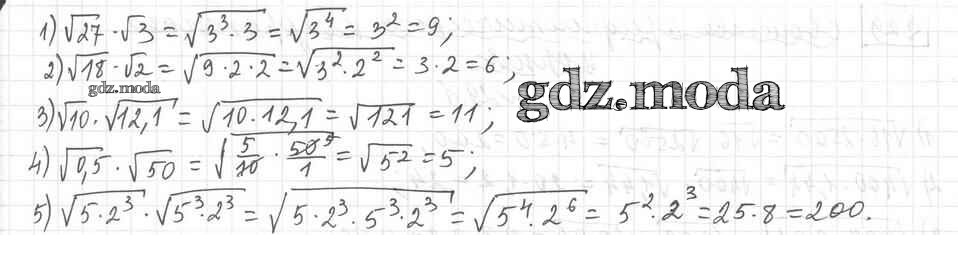 1) √27 · √3 = √(3³ · 3) = √(3⁴) = 3² = 9;
2) √18 · √2 = √(9 · 2 · 2) = √(3² · 2²) = 3 · 2 = 6;
gdz.moda
gdz.moda
3) √10 · √12,1 = √(10 · 12,1) = √121 = 11;
4) √0,5 · √50 = √(5/10 · 50⁵/1) = √(5²) = 5;
5) √(5 · 2³) · √(5³ · 2³) = √(5 · 2³ · 5³ · 2³) = √(5⁴ · 2⁶) = 5² · 2³ = 25 · 8 = 200.